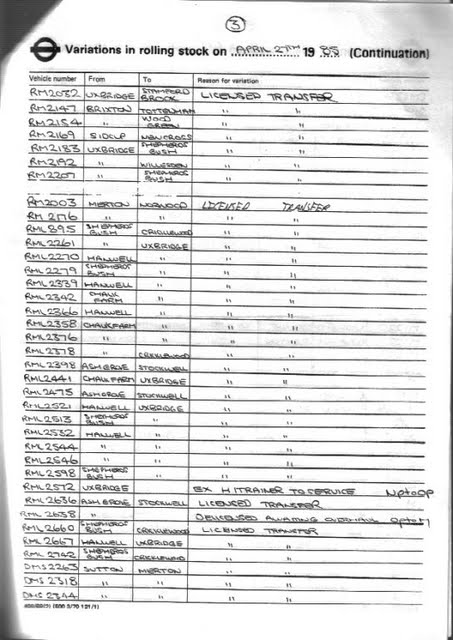 3
Variations in rolling stock on APRIL 27TH 19 85 (Continuation)
Vehicle number From To Reason for variation
RM2082 UXBRIDGE STAMFORD BROOK LICENSED TRANSFER
RM2147 BRIXTON TOTTENHAM " "
RM2154 " WOOD GREEN " "
RM2169 SIDCUP NEWCROSS " "
RM2183 UXBRIDGE SHEPHERDS BUSH " "
RM2192 " WILLESDEN " "
RM2207 " SHEPHERDS BUSH " "
RM2003 MERTON NORWOOD LICENSED TRANSFER
RM2176 " " " "
RML895 SHEPHERDS BUSH CRICKLEWOOD " "
RML2261 " UXBRIDGE " "
RML2270 HANWELL " " "
RML2279 SHEPHERDS BUSH " " "
RML2339 HANWELL " " "
RML2342 CHALK FARM " " "
RML2366 HANWELL " " "
RML2358 CHALK FARM " " "
RML2376 " " " "
RML2378 " CRICKLEWOOD " "
RML2398 ASHGROVE STOCKWELL " "
RML2441 CHALK FARM UXBRIDGE " "
RML2475 ASHGROVE STOCKWELL " "
RML2521 HANWELL UXBRIDGE " "
RML2513 SHEPHERDS BUSH " " "
RML2532 HANWELL " " "
RML2544 " " " "
RML2546 " " " "
RML2598 SHEPHERDS BUSH " " "
RML2572 UXBRIDGE EX H/TRAINER TO SERVICE NptoOP
RML2636 ASHGROVE STOCKWELL LICENSED TRANSFER
RML2658 " DELICENSED AWAITING OVERHAUL
RML2660 SHEPHERDS BUSH CRICKLEWOOD LICENSED TRANSFER
RML2667 HANWELL UXBRIDGE " "
RML2742 SHEPHERDS BUSH CRICKLEWOOD " "
DMS2263 SUTTON MERTON " "
DMS2318 " " " "
DMS2344 " " " "